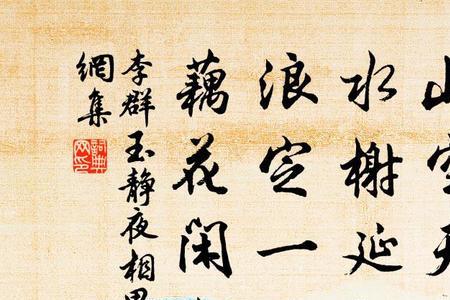 山空天
水榭延
浪定一
藕花閑
李群玉靜夜相思
網集